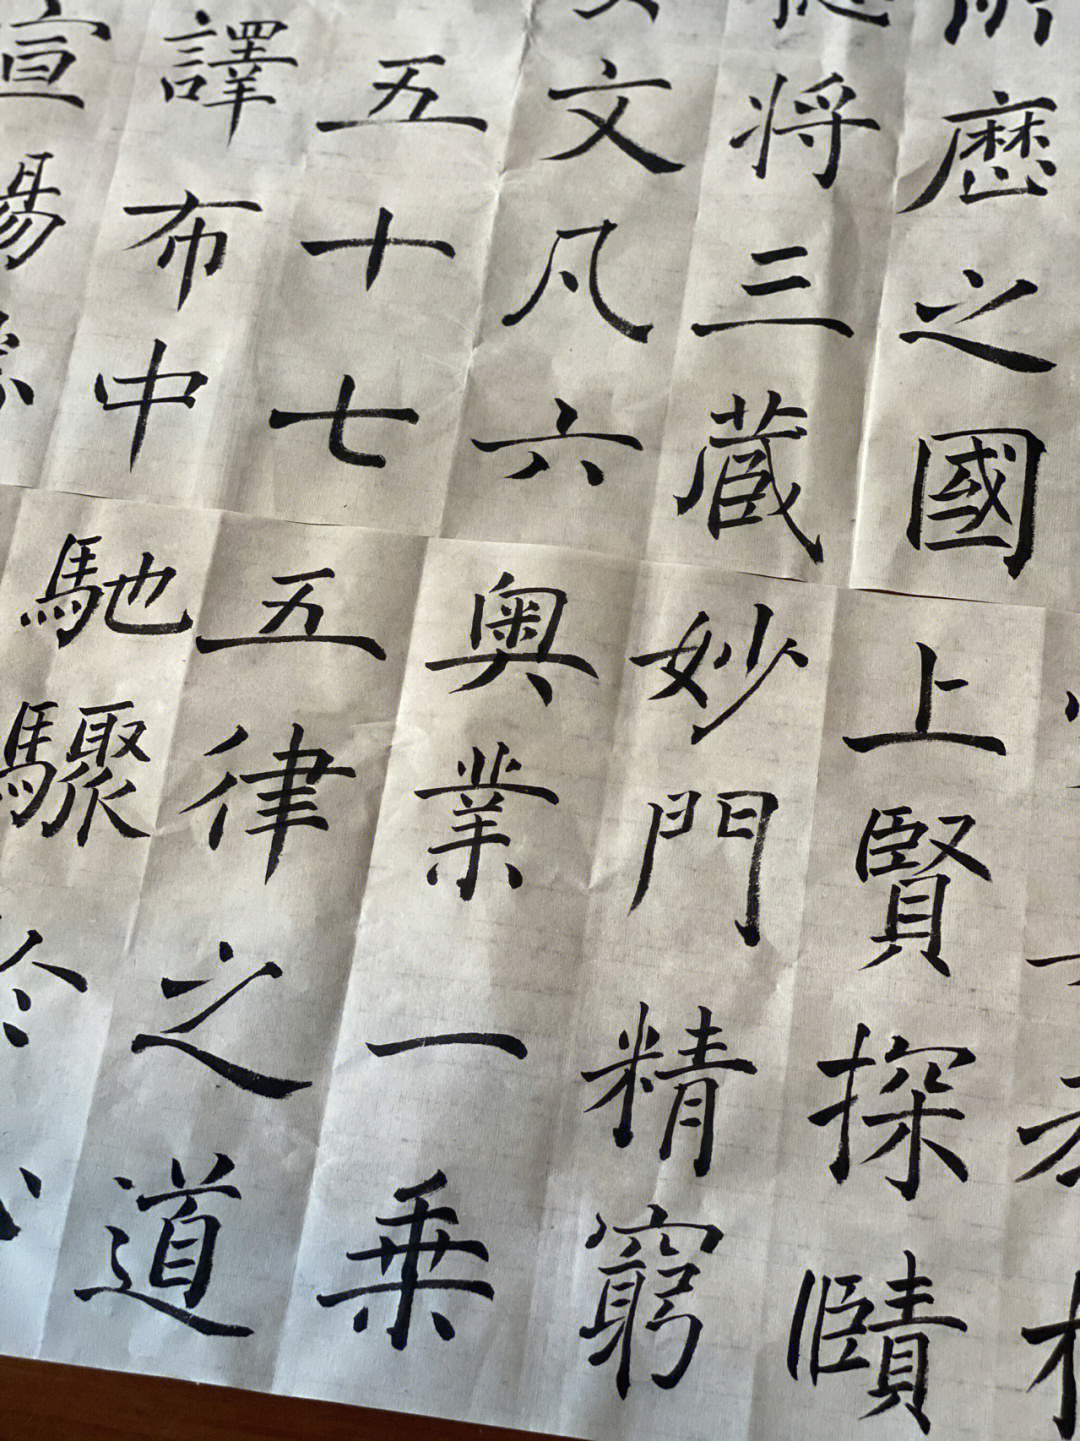 所歷之國
将三蔵
文凡六
五十七
譯布中
宣揚
上賢探賾
妙門精窮
奥業一乗
五律之道
馳驟於